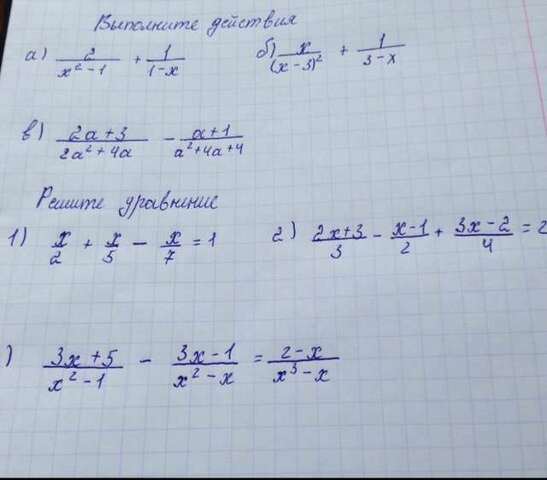 Выполните действия
а) 2/(x²-1) + 1/(1-x) б) x/(x-3)² + 1/(3-x)
в) (2a+3)/(2a²+4a) - (a+1)/(a²+4a+4)
Решите уравнение
1) x/2 + x/5 - x/7 = 1 2) (2x+3)/3 - (x-1)/2 + (3x-2)/4 = 2
) (3x+5)/(x²-1) - (3x-1)/(x²-x) = (2-x)/(x³-x)